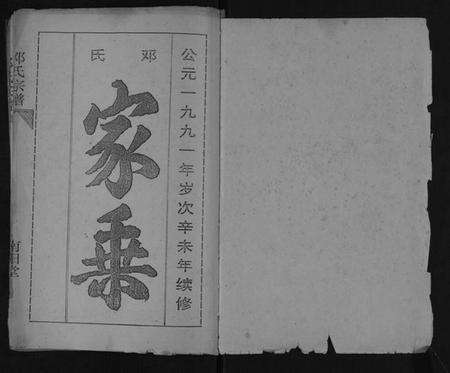 公元一九九一年岁次辛未年续修
邓氏
家乘
邓氏宗谱
南阳堂